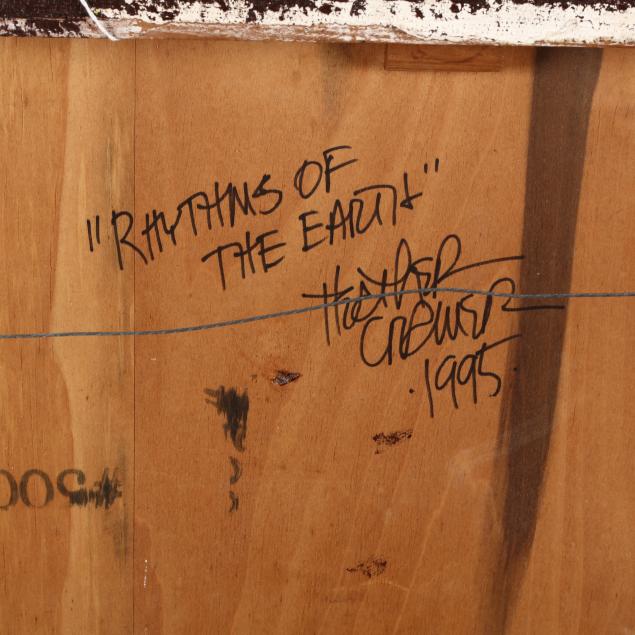 "RHYTHMS OF
THE EARTH"
HEATHER
CROWER
·1995·